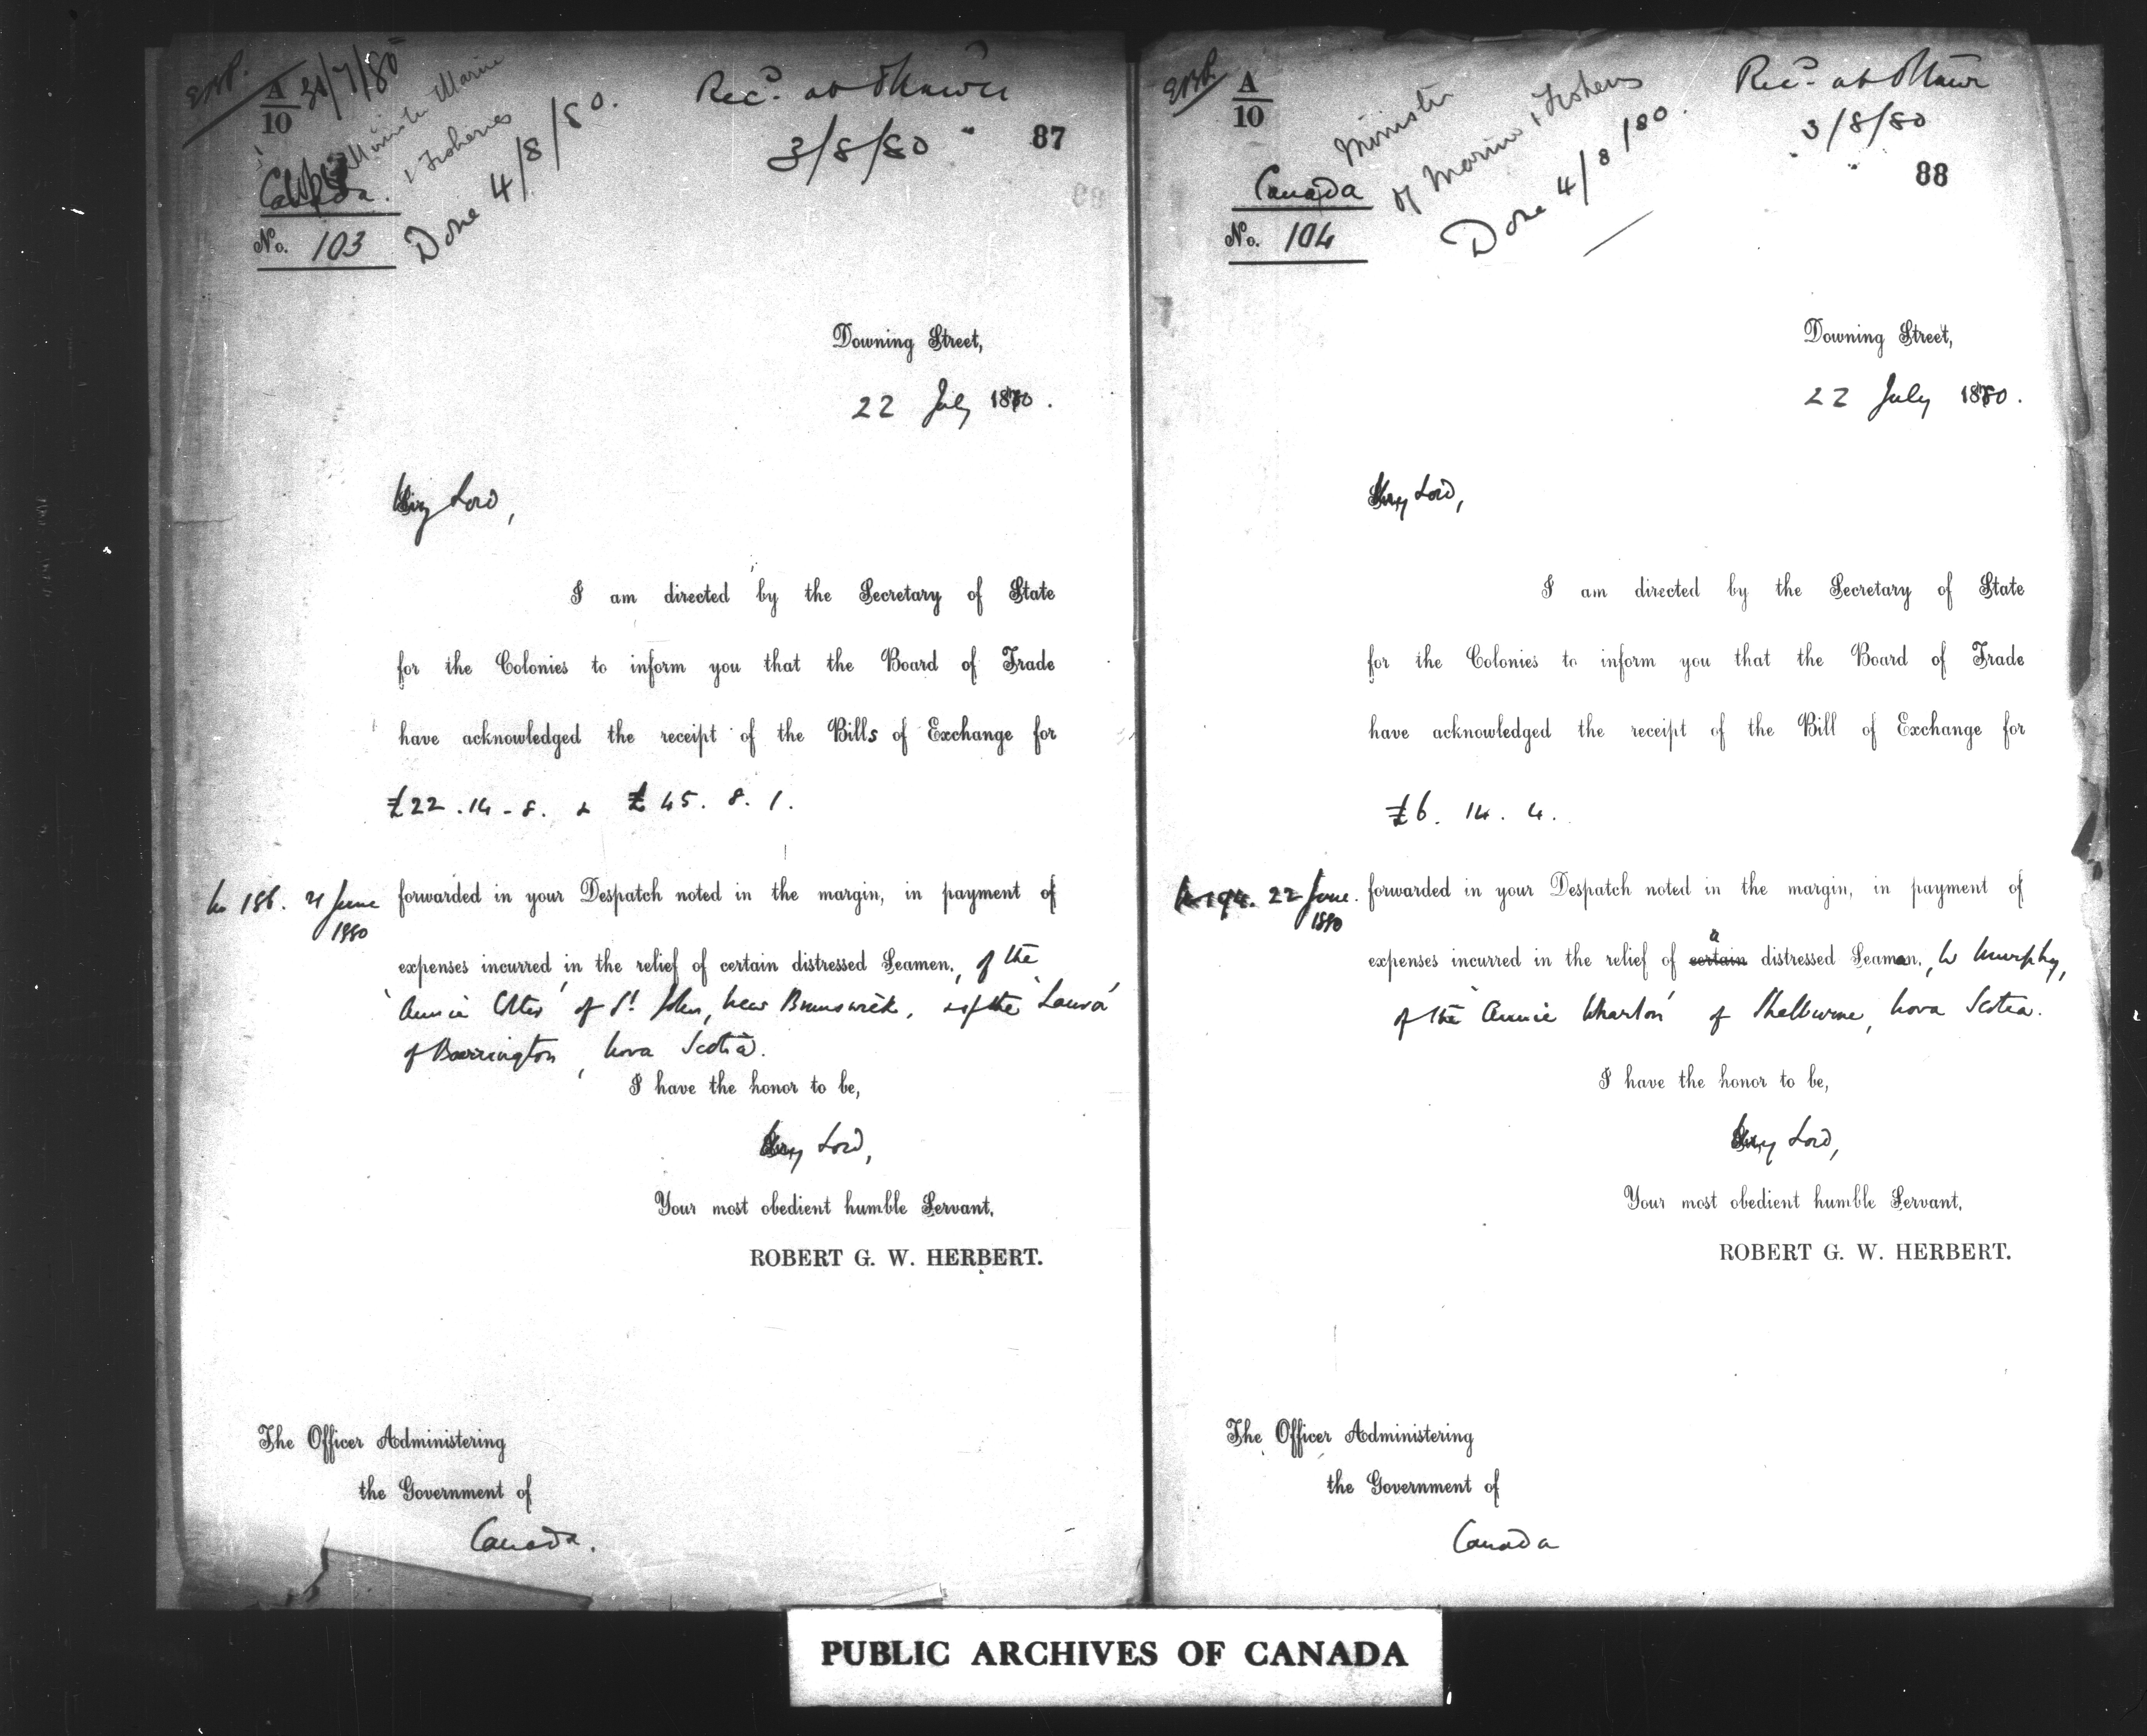 A
10
31/7/80
Minister Marine
& Fisheries
Done 4/8/80.
Recd. at Ottawa
3/8/80
87
Canada.
No. 103
Downing Street,
22 July 1880.
My Lord,
I am directed by the Secretary of State
for the Colonies to inform you that the Board of Trade
have acknowledged the receipt of the Bills of Exchange for
£22.14.8. & £45.8.1.
No 186. 21 June
1880
forwarded in your Despatch noted in the margin, in payment of
expenses incurred in the relief of certain distressed Seamen, of the
'Annie of St. John, New Brunswick, & of the 'Laura'
of Barrington, Nova Scotia.
I have the honor to be,
My Lord,
Your most obedient humble Servant,
ROBERT G. W. HERBERT.
The Officer Administering
the Government of
Canada.
A
10
Minister
of Marine & Fisheries
Done 4/8/80.
Recd. at Ottawa
3/8/80
88
Canada
No. 104
Downing Street,
22 July 1880.
My Lord,
I am directed by the Secretary of State
for the Colonies to inform you that the Board of Trade
have acknowledged the receipt of the Bill of Exchange for
£6. 14. 4.
22 June.
1880
forwarded in your Despatch noted in the margin, in payment of
expenses incurred in the relief of certain a distressed Seaman, W Murphy,
of the 'Annie Wharton' of Shelburne, Nova Scotia.
I have the honor to be,
My Lord,
Your most obedient humble Servant,
ROBERT G. W. HERBERT.
The Officer Administering
the Government of
Canada
PUBLIC ARCHIVES OF CANADA